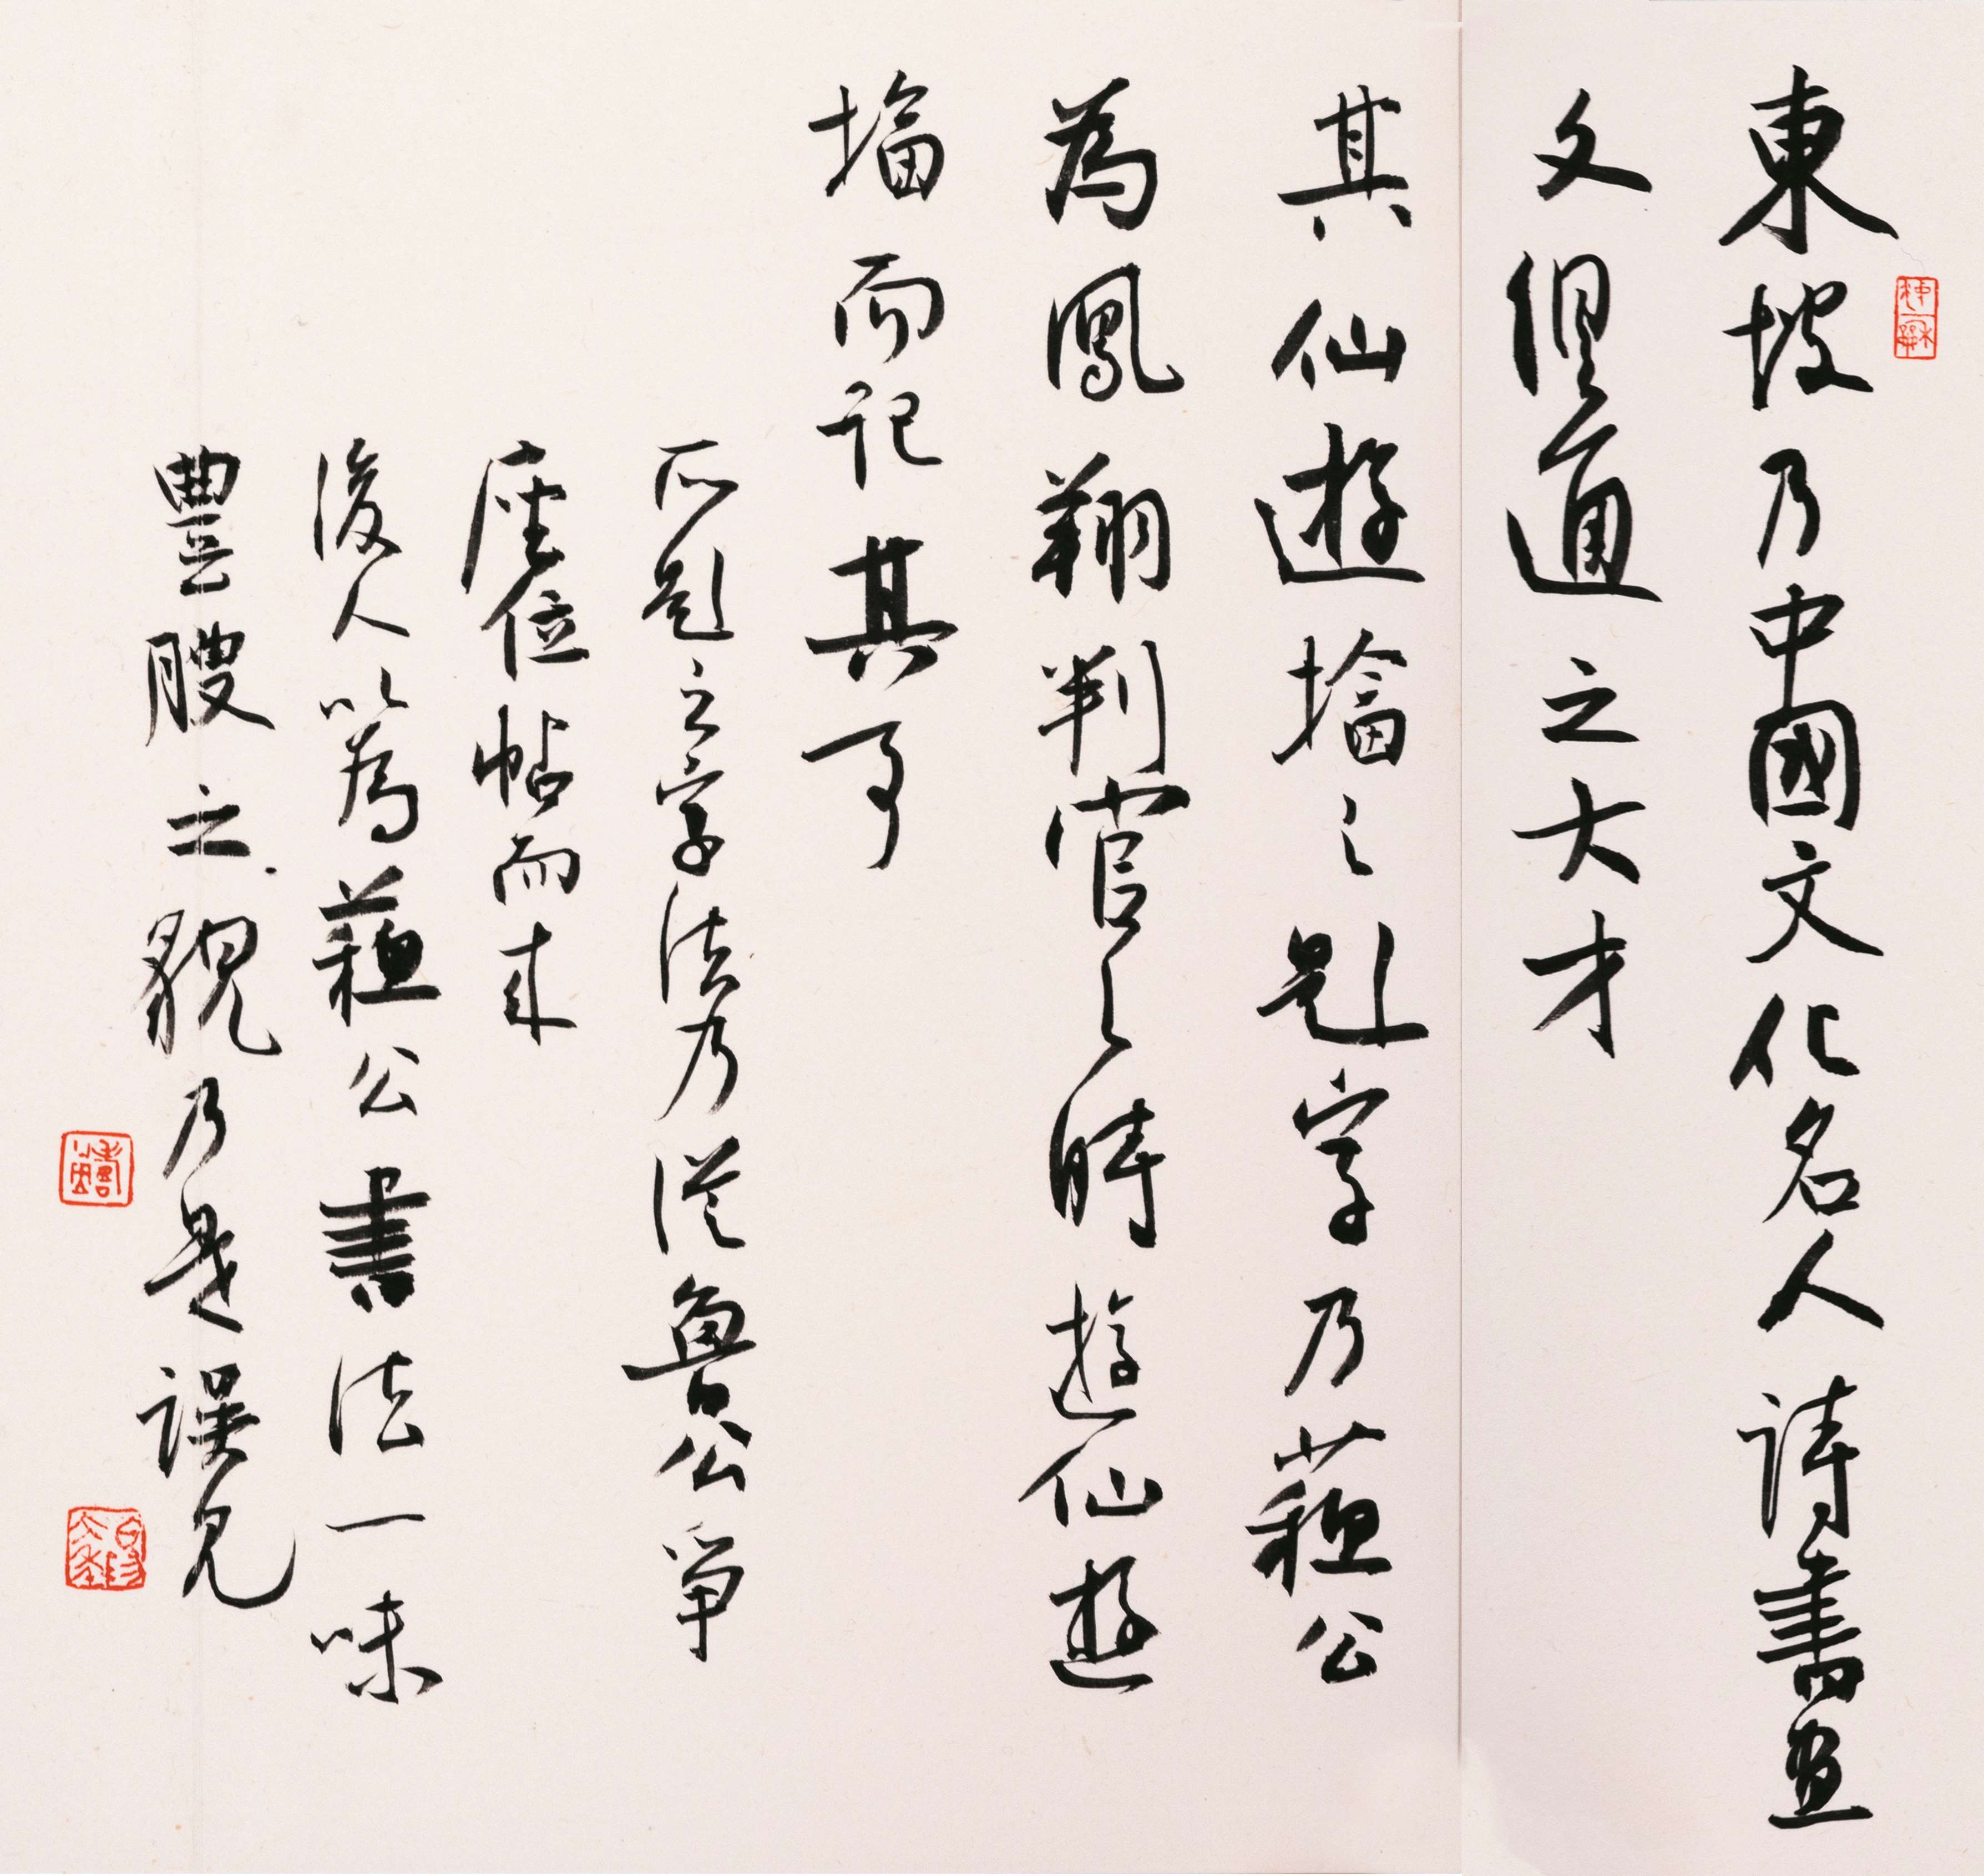 東坡乃中國文化名人詩書畫
文俱通之大才
其仙遊墖之題字乃蘇公
為鳳翔判官之時遊仙遊
墖而記其事
所題之字法乃從魯公爭
座位帖而來
後人以為蘇公書法一味
豐腴之貌乃是誤見